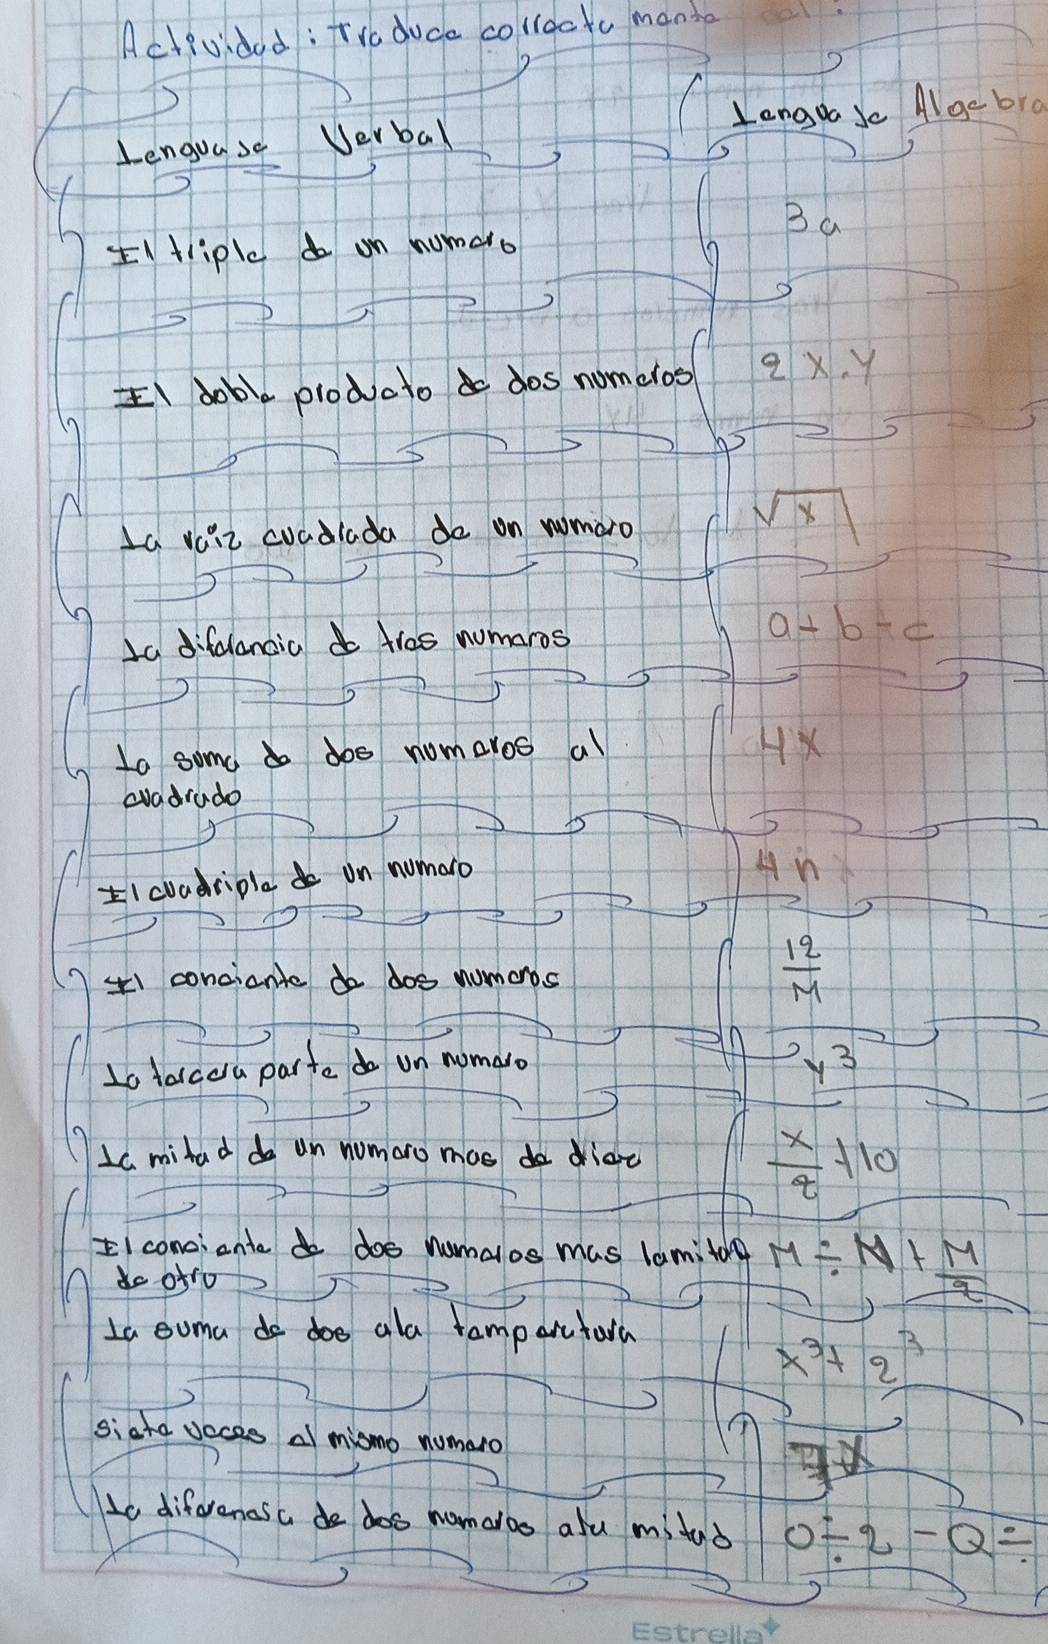 Actividad: Traduce correcta mente
Lenguaje Verbal Lenguaje Algebra
El triple de un numero 3a
El doble producto de dos numeros 2 x.y
La raiz cuadrada de un numero √x
La diferancia de tres numeros a-b-c
La suma de dos numeros al 4x
cuadrado
El cuadriple de un numero 4n
El conciente de dos numeros 12/M
La tercera parte de un numero y3
La mitad de un numero mas de diez x/2 +10
El conciente de dos numeros mas lamitad M÷N+M/2
de otro
La suma de dos ala tamparatura x³+2³
siete veces el mismo numero 7x
La diferencia de dos numeros ala mitad O÷2-Q÷
Estrella